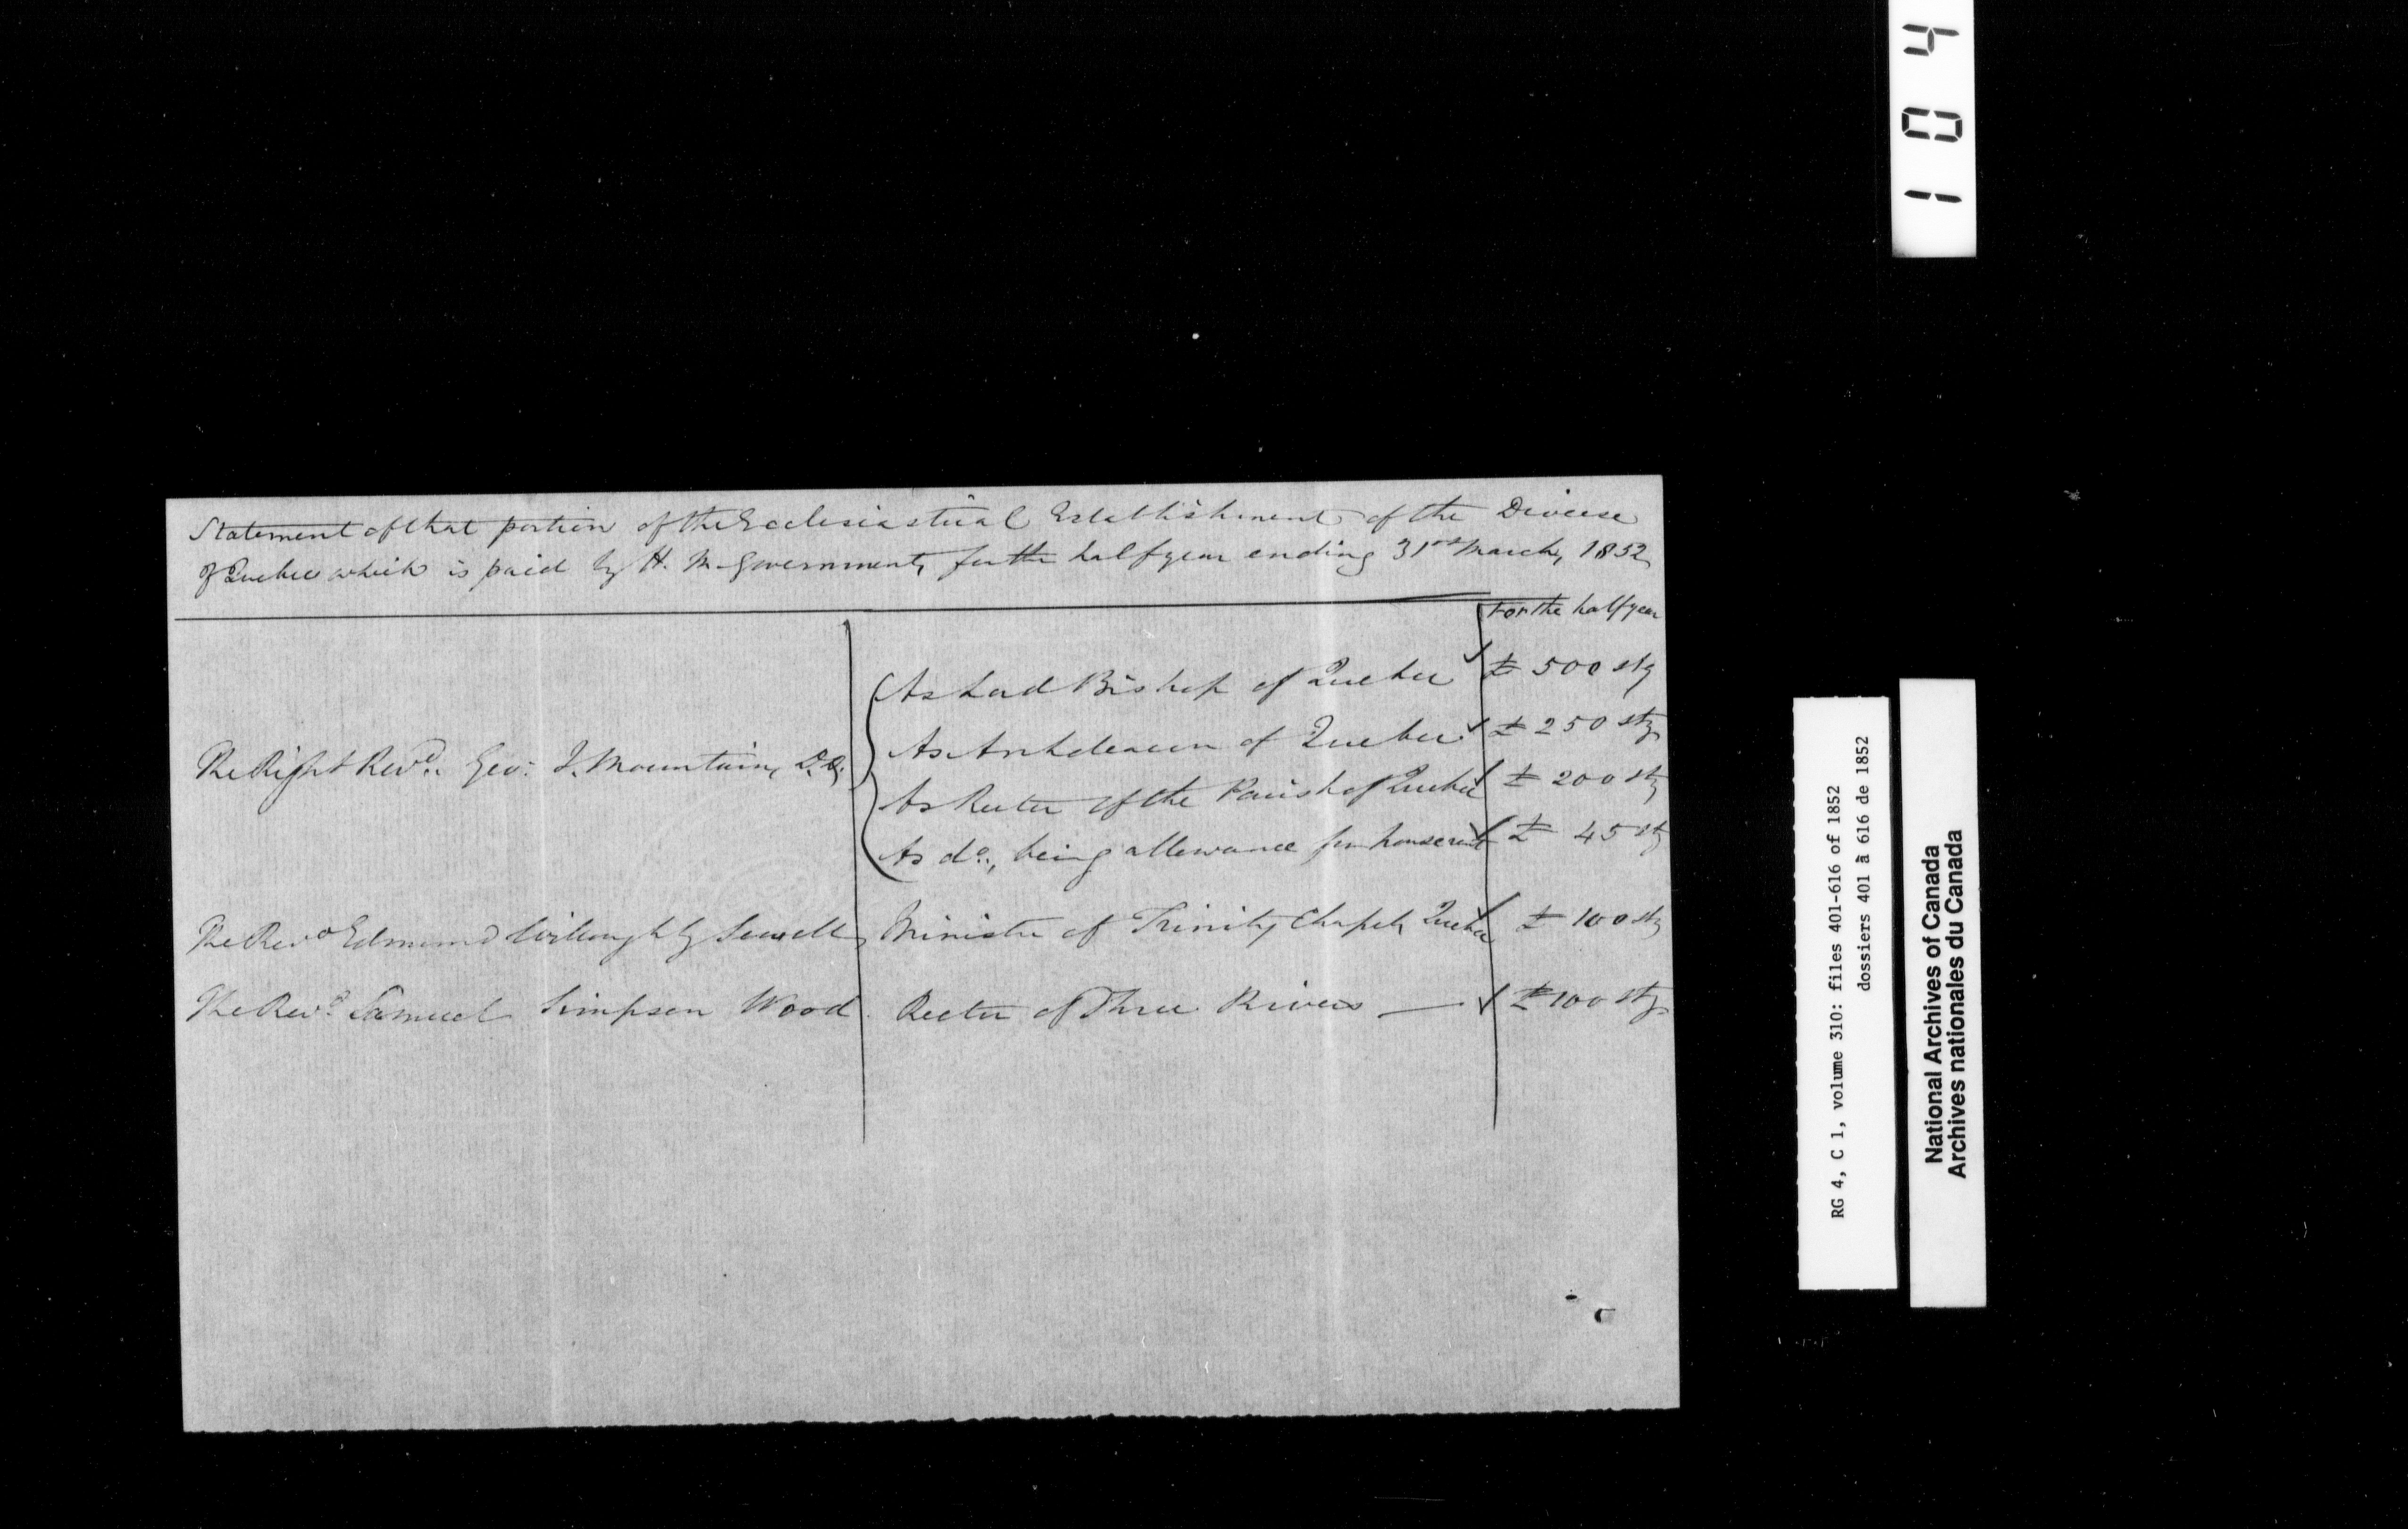 104
Statement of that portion of the Ecclesiastical Establishment of the Diocese
of Quebec which is paid by H. M. Government, for the half year ending 31st March, 1852
For the half year
The Right Revd. Geo: J. Mountain, D.D.
As Lord Bishop of Quebec £ 500 stg
As Archdeacon of Quebec £ 250 stg
As Rector of the Parish of Quebec £ 200 stg
As do., being allowance for house rent £ 45 stg
The Revd Edmund Willoughby Sewell, Minister of Trinity Chapel, Quebec £ 100 stg
The Revd. Samuel Simpson Wood Rector of Three Rivers — £ 100 stg
RG 4, C 1, volume 310: files 401-616 of 1852
dossiers 401 à 616 de 1852
National Archives of Canada
Archives nationales du Canada